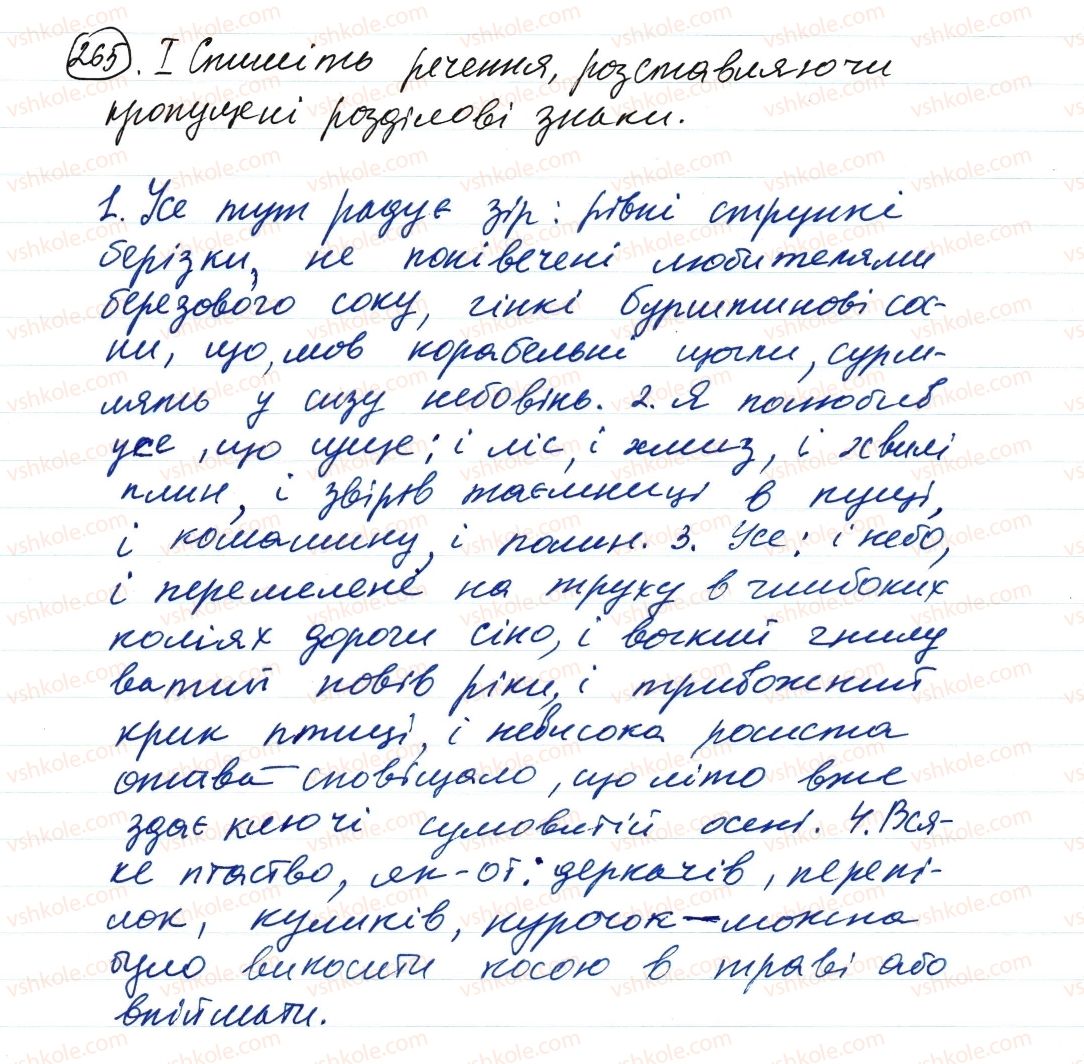 265. I Спишіть речення, розставляючи
пропущені розділові знаки.
1. Усе тут радує зір: рівні стрункі
берізки, не понівечені любителями
березового соку, гінкі бурштинові со-
ни, що, мов корабельні щогли, сурм-
лять у сизу небовінь. 2. Я полюбив
усе, що суще: і ліс, і хмиз, і хвилі
плин, і звірів таємниці в пущі,
і комашину, і полин. 3. Усе: і небо,
і перемелене на труху в глибоких
коліях дороги сіно, і вогкий гнилу
ватий повів ріки, і тривожний
крик птиці, і невисока росиста
отава – сповіщало, що літо вже
здає ключі сумовитій осені. 4. Вся-
ке птаство, як-от: деркачів, перепі-
лок, куликів, курочок – можна
було викосити косою в траві або
впіймати.